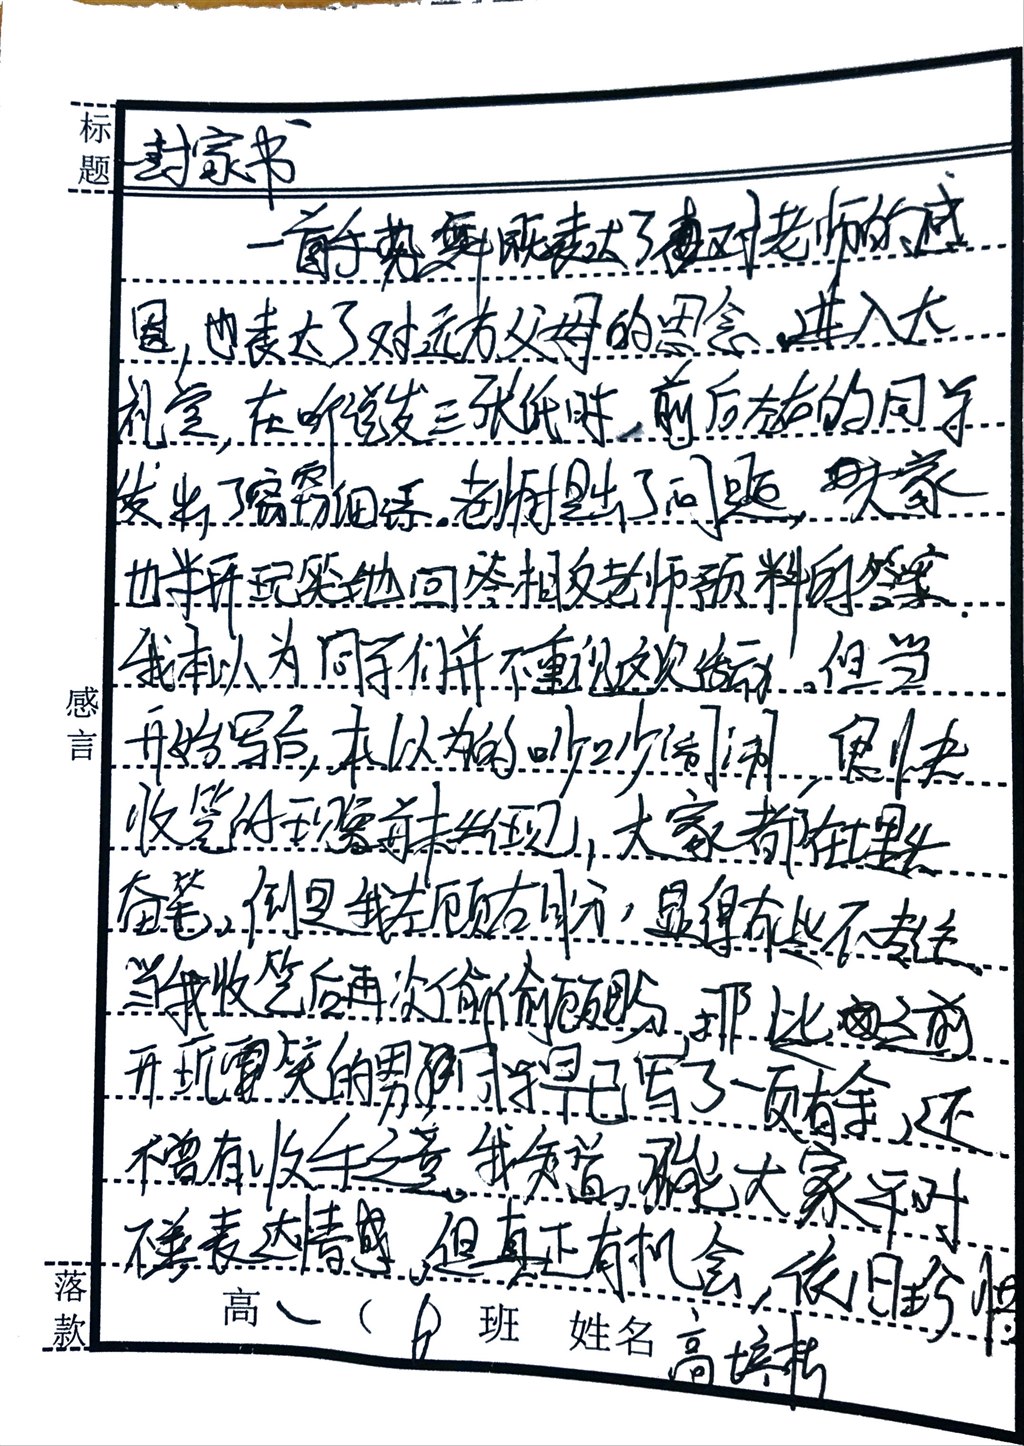 标题
一封家书
一首手势舞既表达了对老师的感
恩,也表达了对远方父母的思念。进入大
礼堂,在听说发三张纸时,前后左右的同学
发出了窸窣细语。老师提出了问题,大家
也半开玩笑地回答相反老师预料的答案。
我本以为同学们并不重视这次活动。但当
开始写后,本以为的吵吵闹闹,便快
收笔的现象并未出现,大家都在埋头
奋笔。倒是我左顾右盼,显得有些不专注。
当我收笔后再次偷偷顾盼,那比之前
开玩笑的男同学早已写了一页有余,还
不曾有收手之意。我知道,可能大家平时
不善表达情感。但真正有机会,依旧珍惜。
感言
落款
高一(6)班 姓名 高培